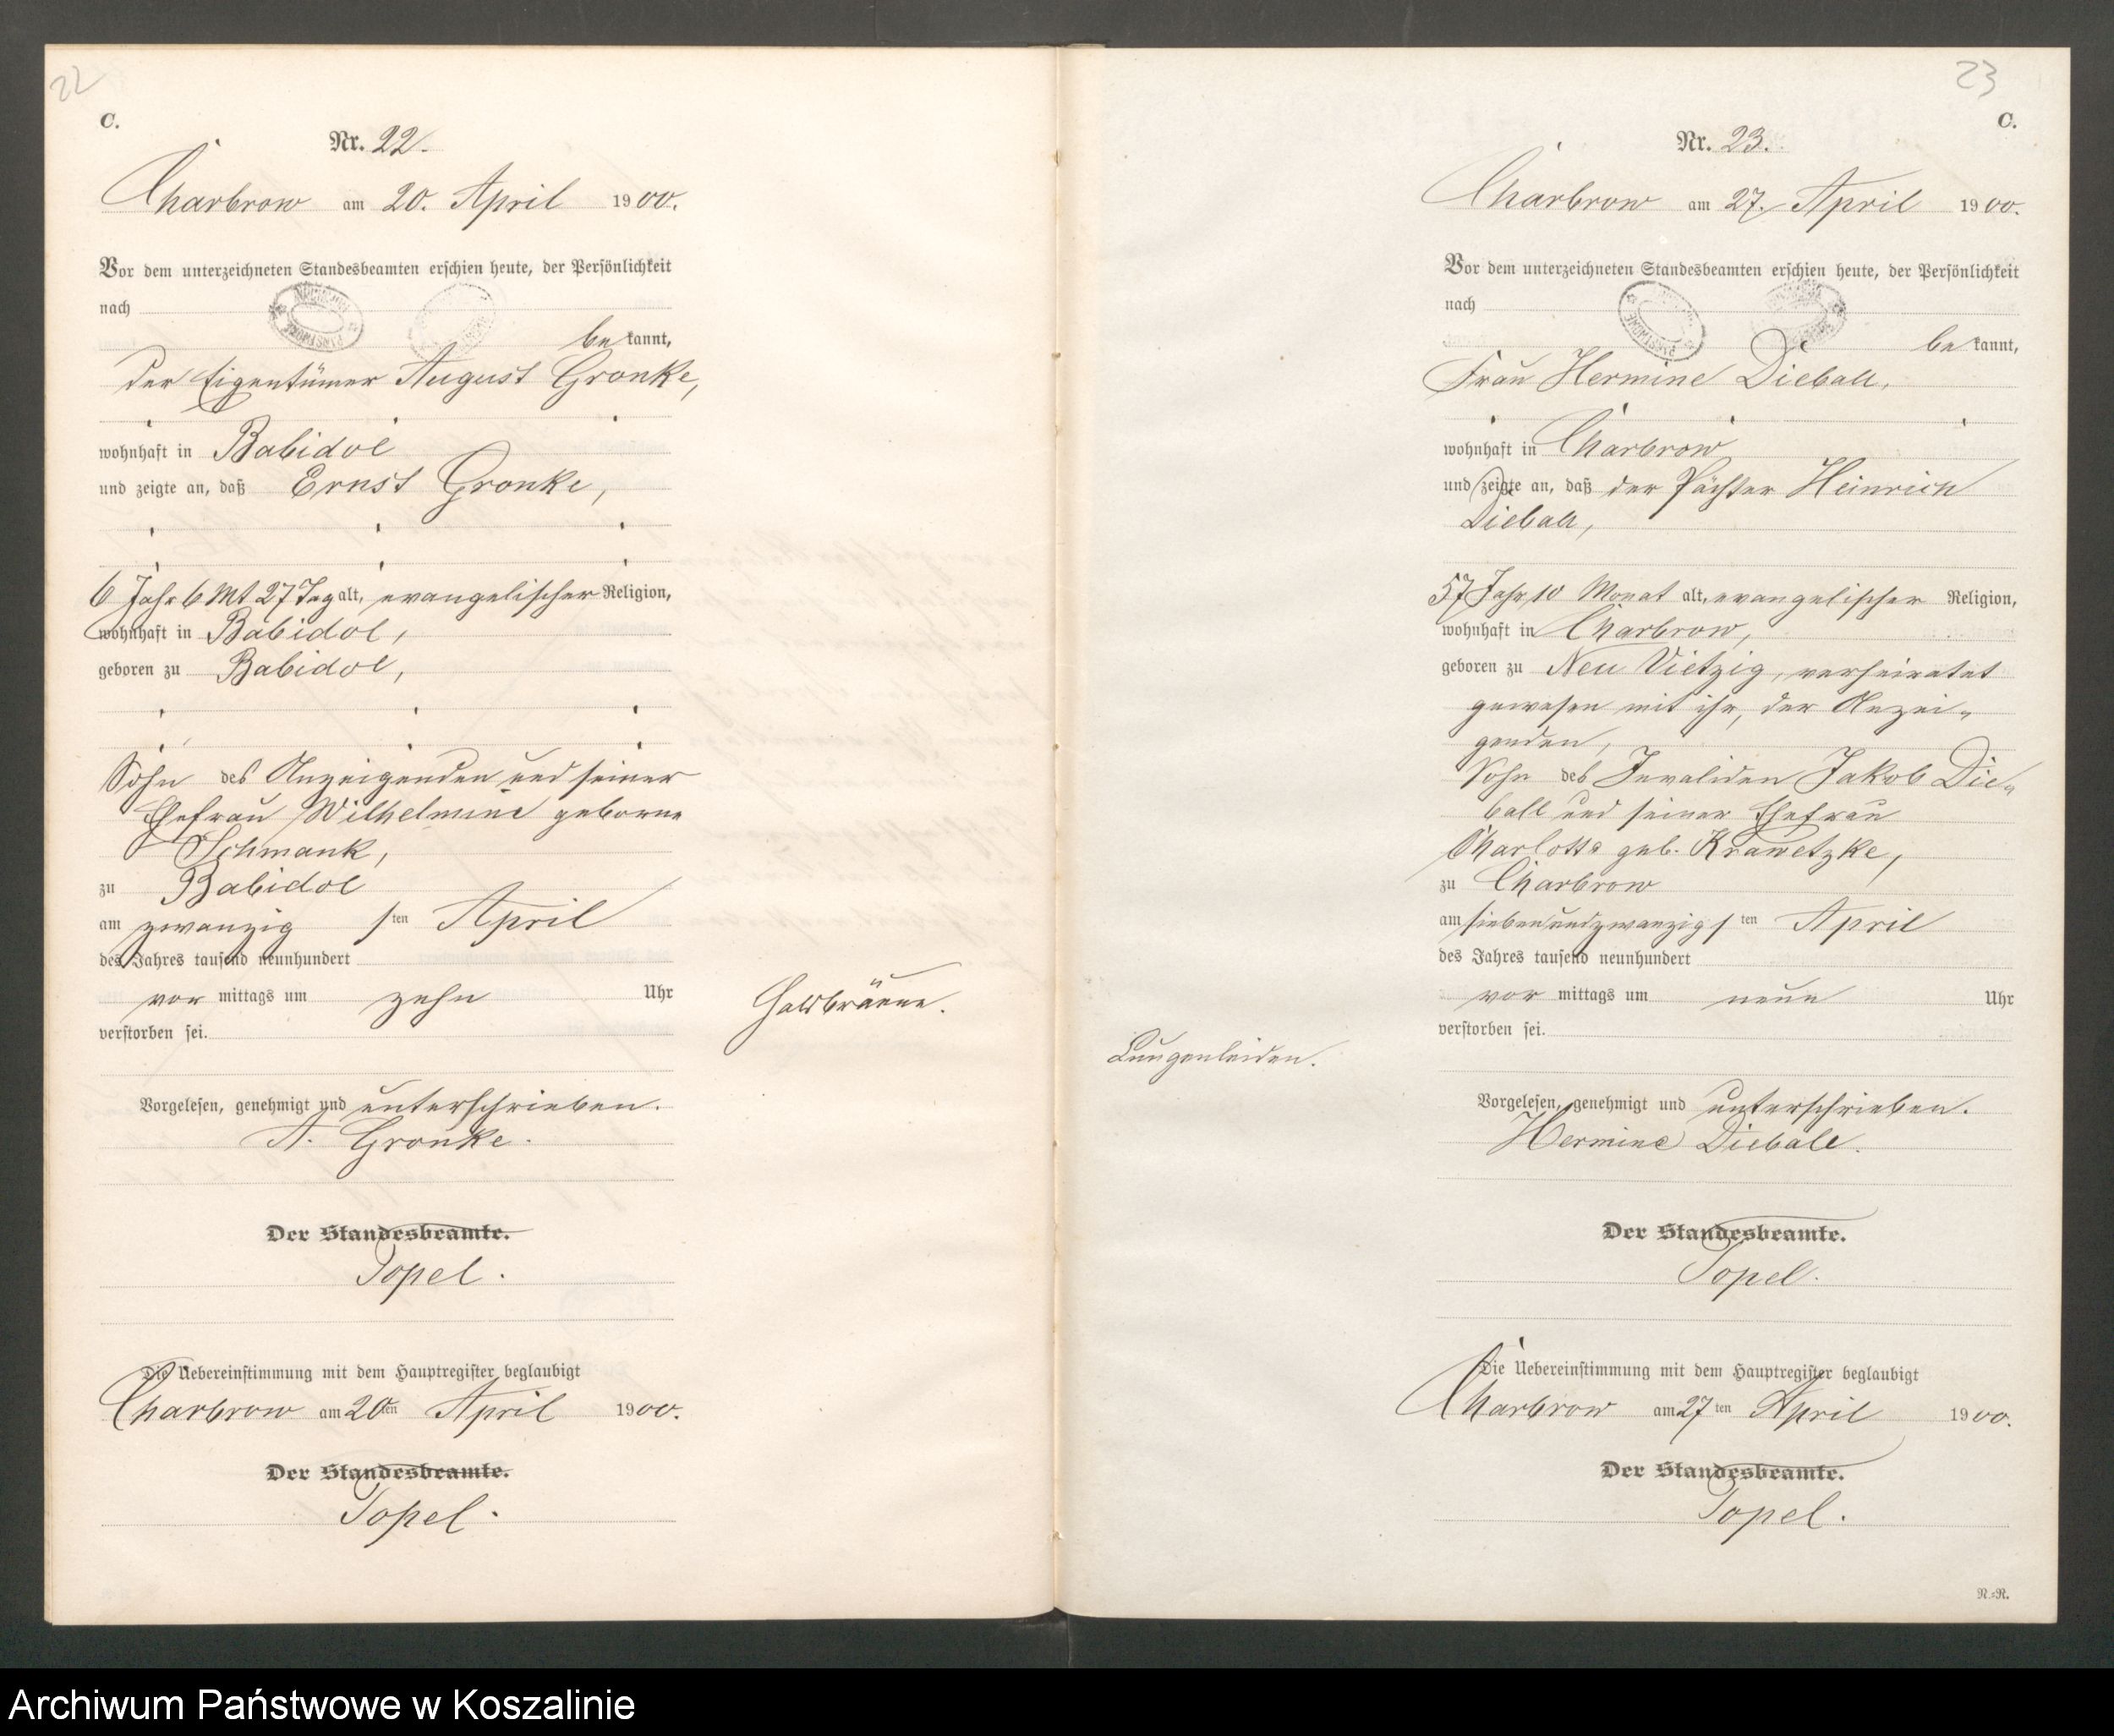 22
C.
Nr. 22.
Charbrow am 20. April 1900.
Vor dem unterzeichneten Standesbeamten erschien heute, der Persönlichkeit
nach
be kannt,
der Eigentümer August Gronke,
wohnhaft in Babidol
und zeigte an, daß Ernst Gronke,
6 Jahr 6 Mt 27 Tag alt, evangelischer Religion,
wohnhaft in Babidol,
geboren zu Babidol,
Sohn des Anzeigenden und seiner
Ehefrau Wilhelmine geborne
Schmank,
zu Babidol
am zwanzig sten April
des Jahres tausend neunhundert
vor mittags um zehn Uhr
verstorben sei.
Halsbräune.
Vorgelesen, genehmigt und unterschrieben.
A. Gronke.
Der Standesbeamte.
Topel.
Die Uebereinstimmung mit dem Hauptregister beglaubigt
Charbrow am 20ten April 1900.
Der Standesbeamte.
Topel.
23
C.
Nr. 23.
Charbrow am 27. April 1900.
Vor dem unterzeichneten Standesbeamten erschien heute, der Persönlichkeit
nach
be kannt,
Frau Hermine Dieball,
wohnhaft in Charbrow
und zeigte an, daß der Pächter Heinrich
Dieball,
57 Jahr 10 Monat alt, evangelischer Religion,
wohnhaft in Charbrow,
geboren zu Neu Vietzig, verheiratet
gewesen mit ihr, der Anzei-
genden,
Sohn des Invaliden Jakob Die-
ball und seiner Ehefrau
Charlotte geb. Krawetzke,
zu Charbrow
am siebenundzwanzig sten April
des Jahres tausend neunhundert
vor mittags um neun Uhr
verstorben sei.
Lungenleiden.
Vorgelesen, genehmigt und unterschrieben.
Hermine Dieball.
Der Standesbeamte.
Topel.
Die Uebereinstimmung mit dem Hauptregister beglaubigt
Charbrow am 27ten April 1900.
Der Standesbeamte.
Topel.
R.=R.
Archiwum Państwowe w Koszalinie